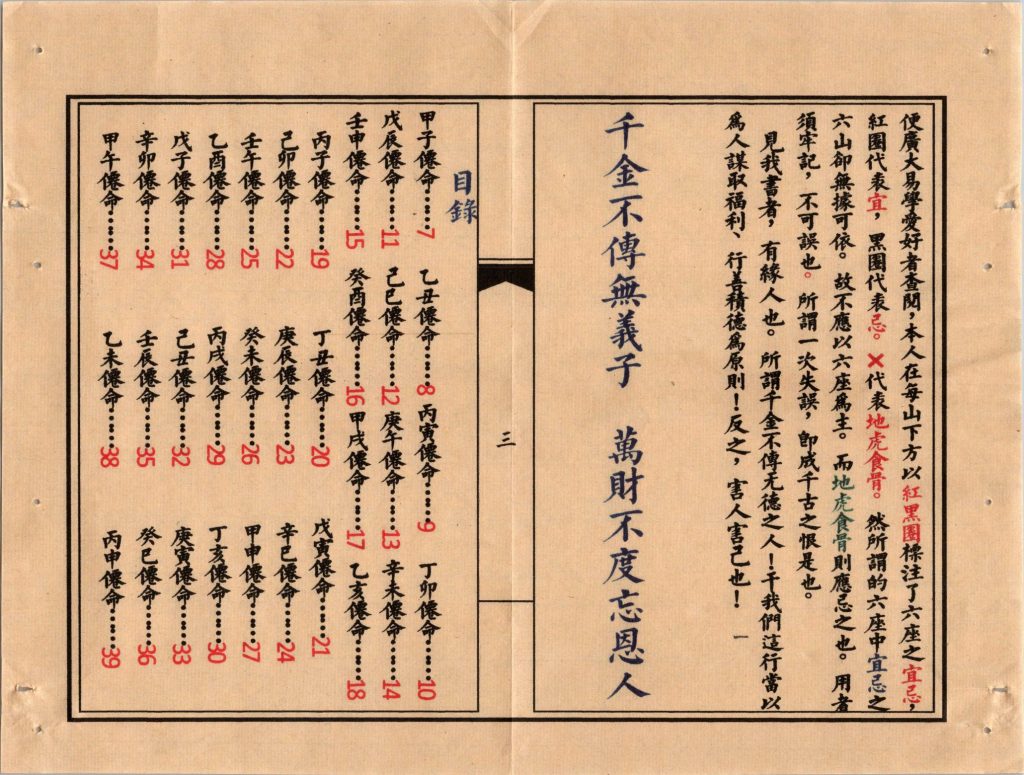 便廣大易學愛好者查閱，本人在每山下方以紅黑圈標注了六座之宜忌，
紅圈代表宜，黑圈代表忌。×代表地虎食骨。然所謂的六座中宜忌之
六山卻無據可依。故不應以六座為主。而地虎食骨則應忌之也。用者
須牢記，不可誤也。所謂一次失誤，即成千古之恨是也。
見我書者，有緣人也。所謂千金不傳无德之人！干我們這行當以
為人謀取福利、行善積德為原則！反之，害人害己也！ 一
千金不傳無義子 萬財不度忘恩人
三
目錄
甲子僊命……7 乙丑僊命……8 丙寅僊命……9 丁卯僊命……10
戊辰僊命……11 己巳僊命……12 庚午僊命……13 辛未僊命……14
壬申僊命……15 癸酉僊命……16 甲戌僊命……17 乙亥僊命……18
丙子僊命……19 丁丑僊命……20 戊寅僊命……21
己卯僊命……22 庚辰僊命……23 辛巳僊命……24
壬午僊命……25 癸未僊命……26 甲申僊命……27
乙酉僊命……28 丙戌僊命……29 丁亥僊命……30
戊子僊命……31 己丑僊命……32 庚寅僊命……33
辛卯僊命……34 壬辰僊命……35 癸巳僊命……36
甲午僊命……37 乙未僊命……38 丙申僊命……39